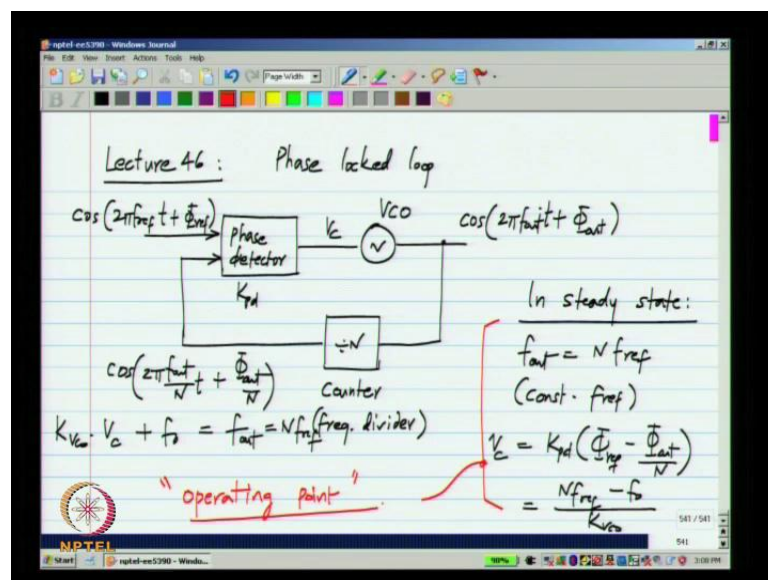 nptel-ee5390 - Windows Journal
File Edit View Insert Actions Tools Help
Page Width
B I
Lecture 46 : Phase locked loop
cos(2πf_ref t + Φ_ref)
phase
detector
K_pd
V_c
VCO
~
cos(2πf_out t + Φ_out)
÷N
Counter
(freq. divider)
cos(2π f_out/N t + Φ_out/N)
K_vco · V_c + f_o = f_out = N f_ref
"operating point"
In steady state:
f_out = N f_ref
(const. f_ref)
V_c = K_pd (Φ_ref - Φ_out/N)
= (N f_ref - f_o)/K_vco
541 / 541
541
NPTEL
Start
nptel-ee5390 - Windo...
90%
3:08 PM